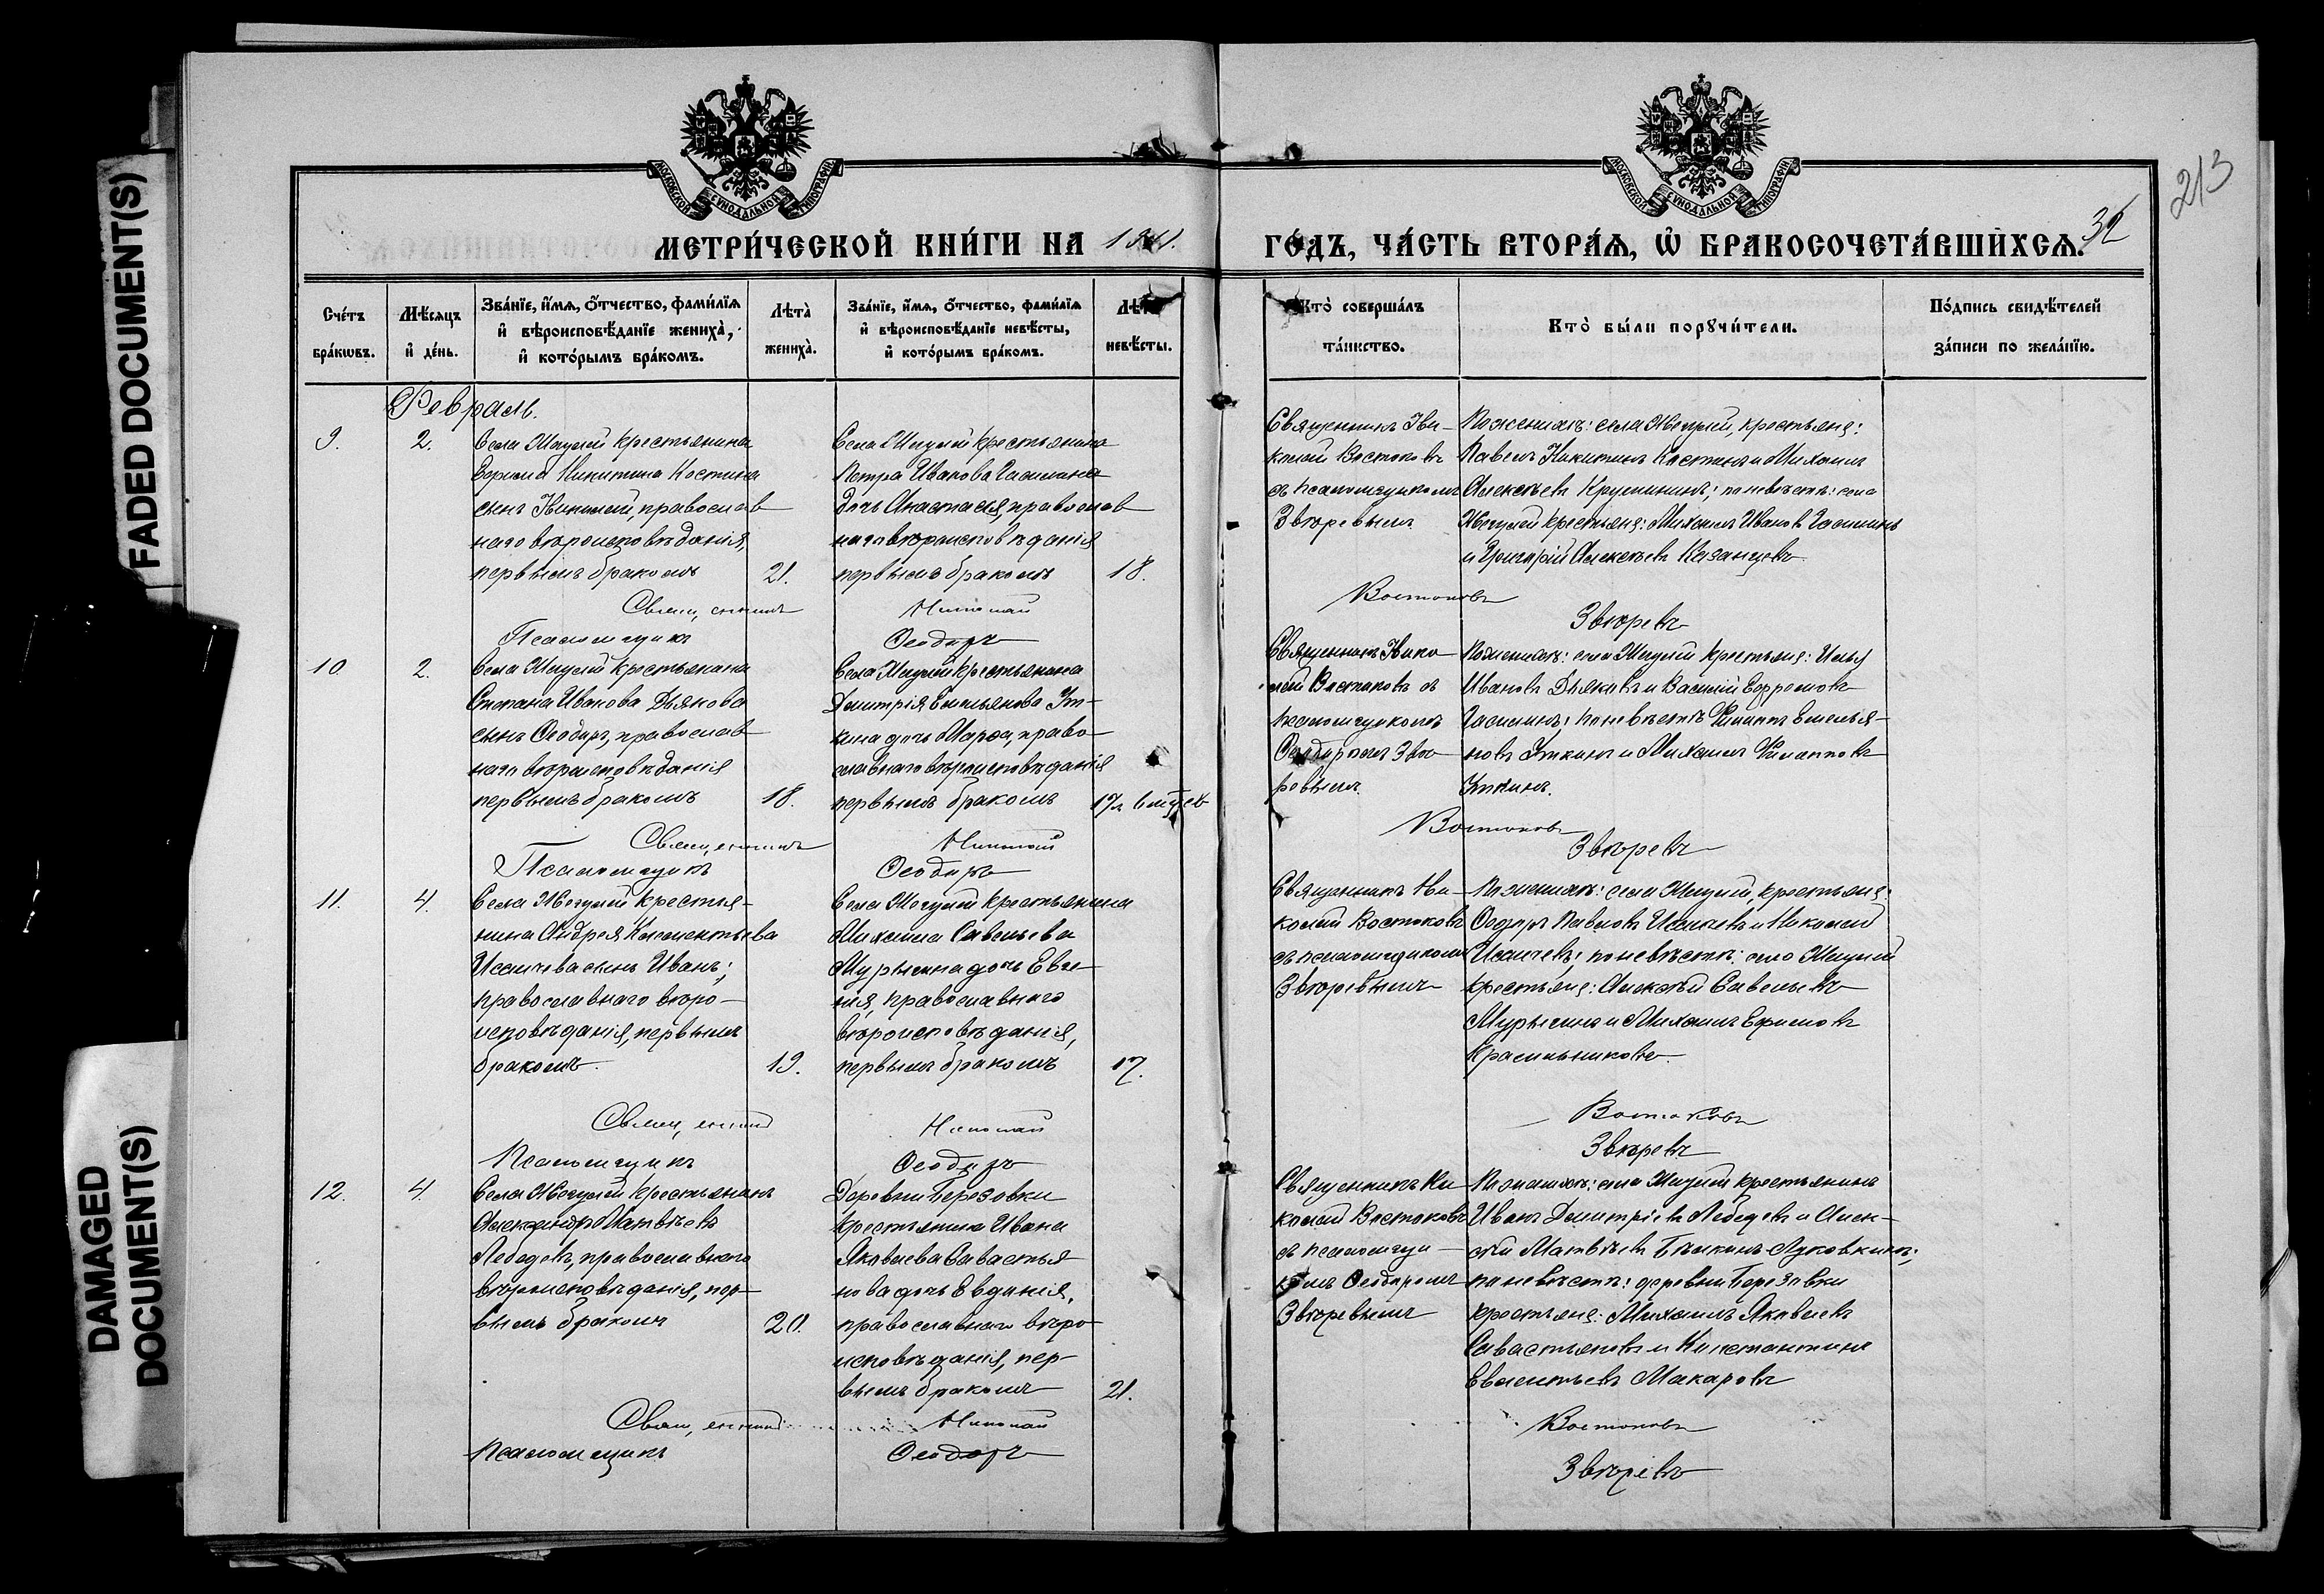 FADED DOCUMENT(S)
DAMAGED
DOCUMENT(S)
МОСКОВСКОЙ СѴНОДАЛЬНОЙ ТИПОГРАФІИ
МОСКОВСКОЙ СѴНОДАЛЬНОЙ ТИПОГРАФІИ
213
32
МЕТРИ́ЧЕСКОЙ КНИ́ГИ НА
ГО́ДЪ, ЧА́СТЬ ВТОРА́Я, Ѡ БРАКОСОЧЕТА́ВШИХСЯ.
Сче́тъ
бра́кѡвъ.
Мѣ́сяцъ
и҆ де́нь.
Зва́нїе, и҆́мѧ, ѻ҆́тчество, фами́лїѧ
и҆ вѣроисповѣ́данїе жениха̀,
и҆ кото́рымъ бра́комъ.
Лѣта̀
жениха̀.
Зва́нїе, и҆́мѧ, ѻ҆́тчество, фами́лїѧ
и҆ вѣроисповѣ́данїе невѣ́сты,
и҆ кото́рымъ бра́комъ.
Лѣта̀
невѣ́сты.
Кто̀ соверша́лъ
та́инство.
Кто̀ бы́ли порꙋчи́тели.
По́дпись свидѣ́телей
за́писи по жела́нїю.
Февраль.
9.
2.
Села крестьянина
Никитина Костина
сынъ Николай, православ
наго вѣроисповѣданія,
первымъ бракомъ
21.
Села крестьянина
Петра Иванова
дочь Анастасія, православ
наго вѣроисповѣданія
первымъ бракомъ
18.
Священникъ Ни-
колай Востоковъ
съ псаломщикомъ
Звѣревымъ
По женихѣ: села крестьяне:
Павелъ Никитинъ Костинъ и Михаилъ
Алексѣевъ по невѣстѣ: села
крестьяне: Михаилъ Ивановъ
и Григорій Алексѣевъ Казанцевъ
Священникъ Николай Востоковъ
Псаломщикъ Ѳеодоръ Звѣревъ
10.
2.
Села крестьянина
Степана Иванова Дьякова
сынъ Ѳеодоръ, православ
наго вѣроисповѣданія
первымъ бракомъ
18.
Села крестьянина
Димитрія Емельянова Ут-
кина дочь Марѳа, право
славнаго вѣроисповѣданія
первымъ бракомъ
Священникъ Нико
лай Востоковъ съ
псаломщикомъ
Ѳеодоромъ Звѣ
ревымъ
По женихѣ: села крестьяне: Илья
Ивановъ Дьяковъ и Василій Ефремовъ
по невѣстѣ Филиппъ Емелья-
новъ Уткинъ и Михаилъ Филипповъ
Уткинъ.
Священникъ Николай Востоковъ
Псаломщикъ Ѳеодоръ Звѣревъ
11.
4.
Села крестья-
нина Андрея Климентьева
Исаичева сынъ Иванъ;
православнаго вѣро-
исповѣданія, первымъ
бракомъ.
19.
Села крестьянина
Михаила Савельева
Мурыгина дочь Евге-
нія, православнаго
вѣроисповѣданія,
первымъ бракомъ
17.
Священникъ Ни-
колай Востоковъ
съ псаломщикомъ
Звѣревымъ
По женихѣ: села крестьяне:
Ѳеодоръ Павловъ Исаичевъ и Николай
Исаичевъ; по невѣстѣ: села
крестьяне: Алексѣй Савельевъ
Мурыгинъ и Михаилъ Ефимовъ
Красильниковъ.
Священникъ Николай Востоковъ
Псаломщикъ Ѳеодоръ Звѣревъ
12.
4
Села крестьянинъ
Александръ Матвѣевъ
Лебедевъ, православнаго
вѣроисповѣданія, пер-
вымъ бракомъ
20.
Деревни Березовки
крестьянина Ивана
Яковлева Савастья-
нова дочь Евдокія,
православнаго вѣро-
исповѣданія, пер-
вымъ бракомъ
21.
Священникъ Ни
колай Востоковъ
съ псаломщи-
комъ Ѳеодоромъ
Звѣревымъ
По женихѣ: села крестьянинъ
Иванъ Димитріевъ Лебедевъ и Алек-
сѣй Матвѣевъ
по невѣстѣ: деревни Березовки
крестьяне: Михаилъ Яковлевъ
Савастьяновъ и Константинъ
Макаровъ
Священникъ Николай Востоковъ
Псаломщикъ Ѳеодоръ Звѣревъ